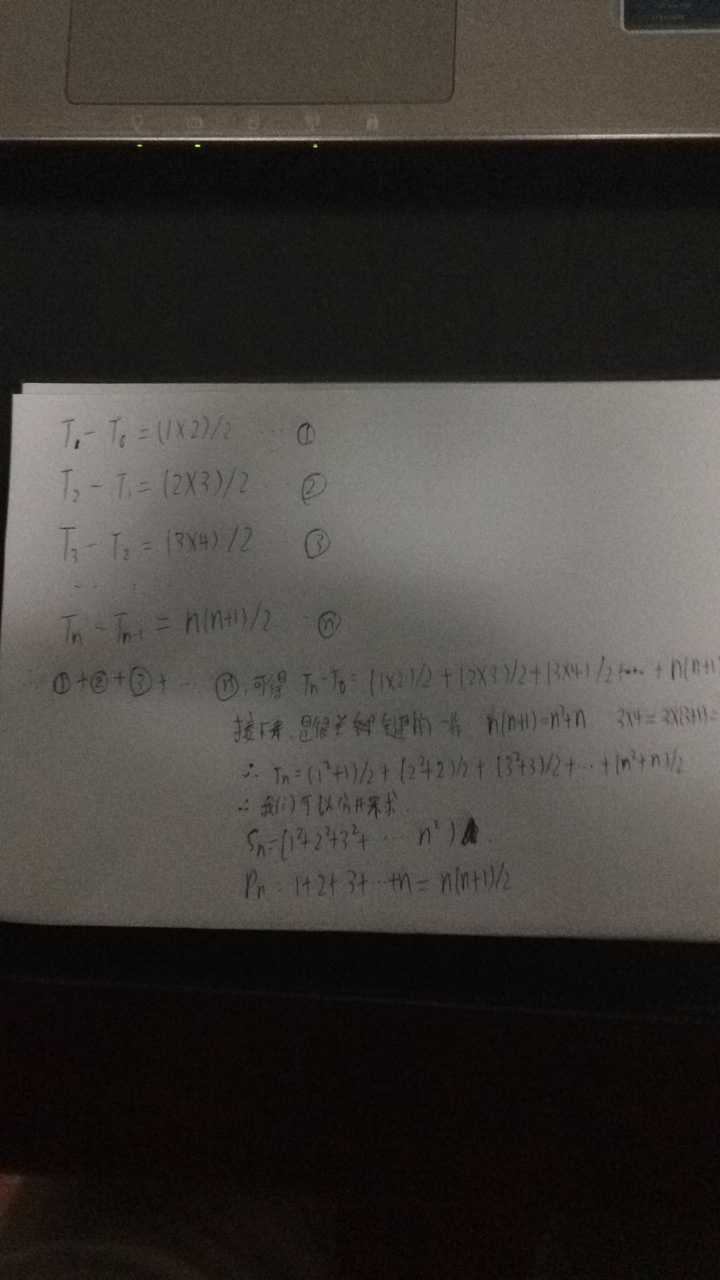 T₁ - T₀ = (1×2)/2 ... ①
T₂ - T₁ = (2×3)/2 ... ②
T₃ - T₂ = (3×4)/2 ③
... ...
Tₙ - Tₙ₋₁ = n(n+1)/2 ⓝ
①+②+③+ ... ⓝ, 可得 Tₙ-T₀ = (1×2)/2+(2×3)/2+(3×4)/2+... + n(n+1)
接下来, 是很关键的一步 n(n+1)=n²+n 3×4=3×(3+1)=
∴ Tₙ=(1²+1)/2+(2²+2)/2+(3²+3)/2+...+(n²+n)/2
∴ 我们可以分开来求.
Sₙ=(1²+2²+3²+ ... n²)
Pₙ = 1+2+3+...+n = n(n+1)/2